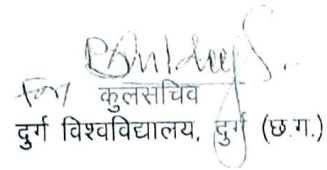 For कुलसचिव
दुर्ग विश्वविद्यालय, दुर्ग (छ.ग.)